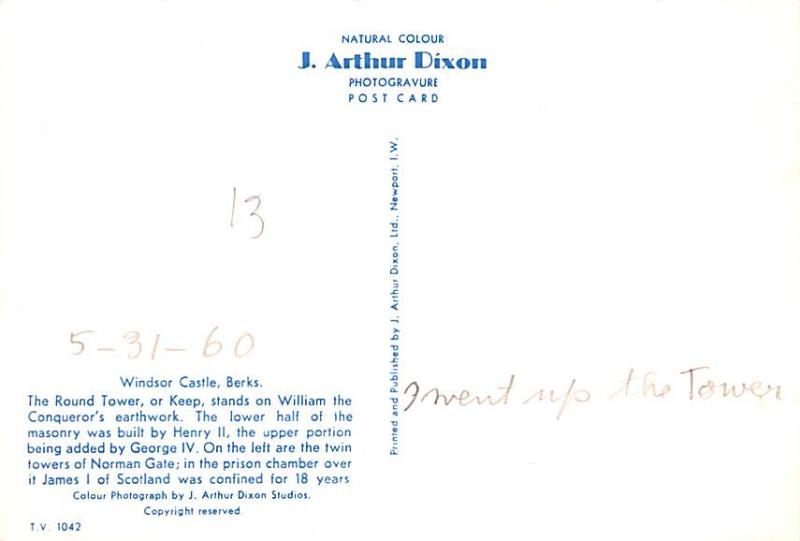 NATURAL COLOUR
J. Arthur Dixon
PHOTOGRAVURE
POST CARD
13
5-31-60
Windsor Castle, Berks.
The Round Tower, or Keep, stands on William the
Conqueror's earthwork. The lower half of the
masonry was built by Henry II, the upper portion
being added by George IV. On the left are the twin
towers of Norman Gate; in the prison chamber over
it James I of Scotland was confined for 18 years
Colour Photograph by J. Arthur Dixon Studios.
Copyright reserved.
T.V. 1042
Printed and Published by J. Arthur Dixon, Ltd., Newport, I.W.
I went up the Tower